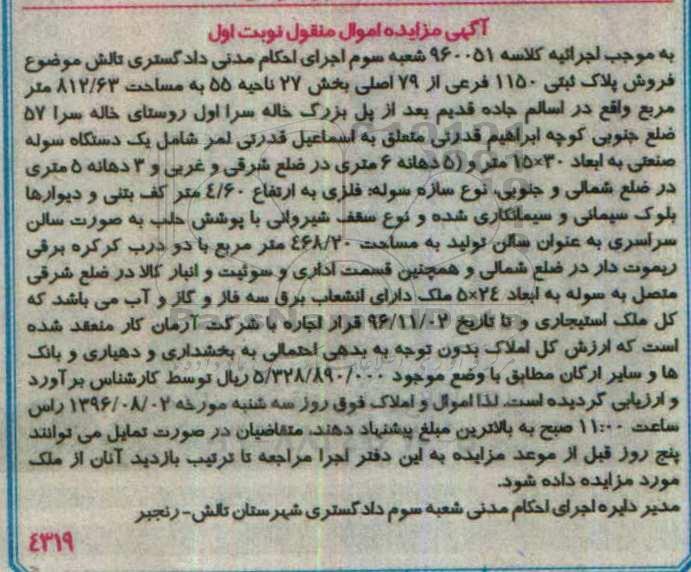 آگهی مزایده اموال منقول نوبت اول
به موجب اجرائیه کلاسه ۹۶۰۰۵۱ شعبه سوم اجرای احکام مدنی دادگستری تالش موضوع
فروش پلاک ثبتی ۱۱۵۰ فرعی از ۷۹ اصلی بخش ۲۷ ناحیه ۵۵ به مساحت ۸۱۲/۶۳ متر
مربع واقع در اسالم جاده قدیم بعد از پل بزرگ خاله سرا اول روستای خاله سرا ۵۷
ضلع جنوبی کوچه ابراهیم قدرتی متعلق به اسماعیل قدرتی لمر شامل یک دستگاه سوله
صنعتی به ابعاد ۳۰×۱۵ متر و (۵ دهانه ۶ متری در ضلع شرقی و غربی و ۳ دهانه ۵ متری
در ضلع شمالی و جنوبی، نوع سازه سوله: فلزی به ارتفاع ۴/۶۰ متر کف بتنی و دیوارها
بلوک سیمانی و سیمانکاری شده و نوع سقف شیروانی با پوشش حلب به صورت سالن
سراسری به عنوان سالن تولید به مساحت ۴۶۸/۲۰ متر مربع با دو درب کرکره برقی
ریموت دار در ضلع شمالی و همچنین قسمت اداری و سوئیت و انبار کالا در ضلع شرقی
متصل به سوله به ابعاد ۲۴×۵ ملک دارای انشعاب برق سه فاز و گاز و آب می باشد که
کل ملک استیجاری و تا تاریخ ۹۶/۱۱/۰۲ قرار اجاره با شرکت آرمان کار منعقد شده
است که ارزش کل املاک بدون توجه به بدهی احتمالی به بخشداری و دهیاری و بانک
ها و سایر ارگان مطابق با وضع موجود ۵/۳۲۸/۸۹۰/۰۰۰ ریال توسط کارشناس برآورد
و ارزیابی گردیده است. لذا اموال و املاک فوق روز سه شنبه مورخه ۱۳۹۶/۰۸/۰۲ راس
ساعت ۱۱:۰۰ صبح به بالاترین مبلغ پیشنهاد دهند. متقاضیان در صورت تمایل می توانند
پنج روز قبل از موعد مزایده به این دفتر اجرا مراجعه تا ترتیب بازدید آنان از ملک
مورد مزایده داده شود.
مدیر دایره اجرای احکام مدنی شعبه سوم دادگستری شهرستان تالش- رنجبر
۴۳۱۹